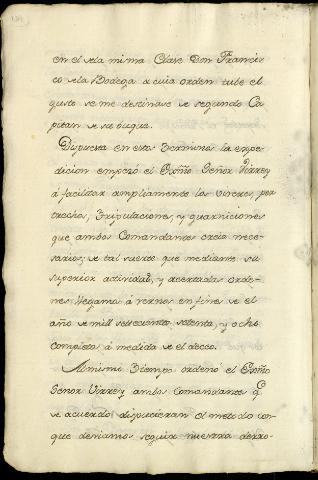 en el de la misma Clase Don Francis
co de la Bodega a cuia orden tube el
gusto se me destinase de segundo Ca
pitan de su buque.
Dispuesta en estos terminos la expe
dicion empezó el Exmo Señor Virrey
á facilitar ampliamente los viveres, per
trechos, tripulaciones, y guarniciones
que ambos Comandantes creia nece-
sarios; de tal suerte que mediante su
superior actividad, y acertadas orde-
nes llegamos á vernos en fines de el
año de mill setecientos setenta, y ocho
completos á medida de el deceo.
Al mismo tiempo ordenó el Exmo
Señor Virrey ambos Comandantes q.e
de acuerdo dispucieran el metodo con
que deviamos seguir nuestra derro-